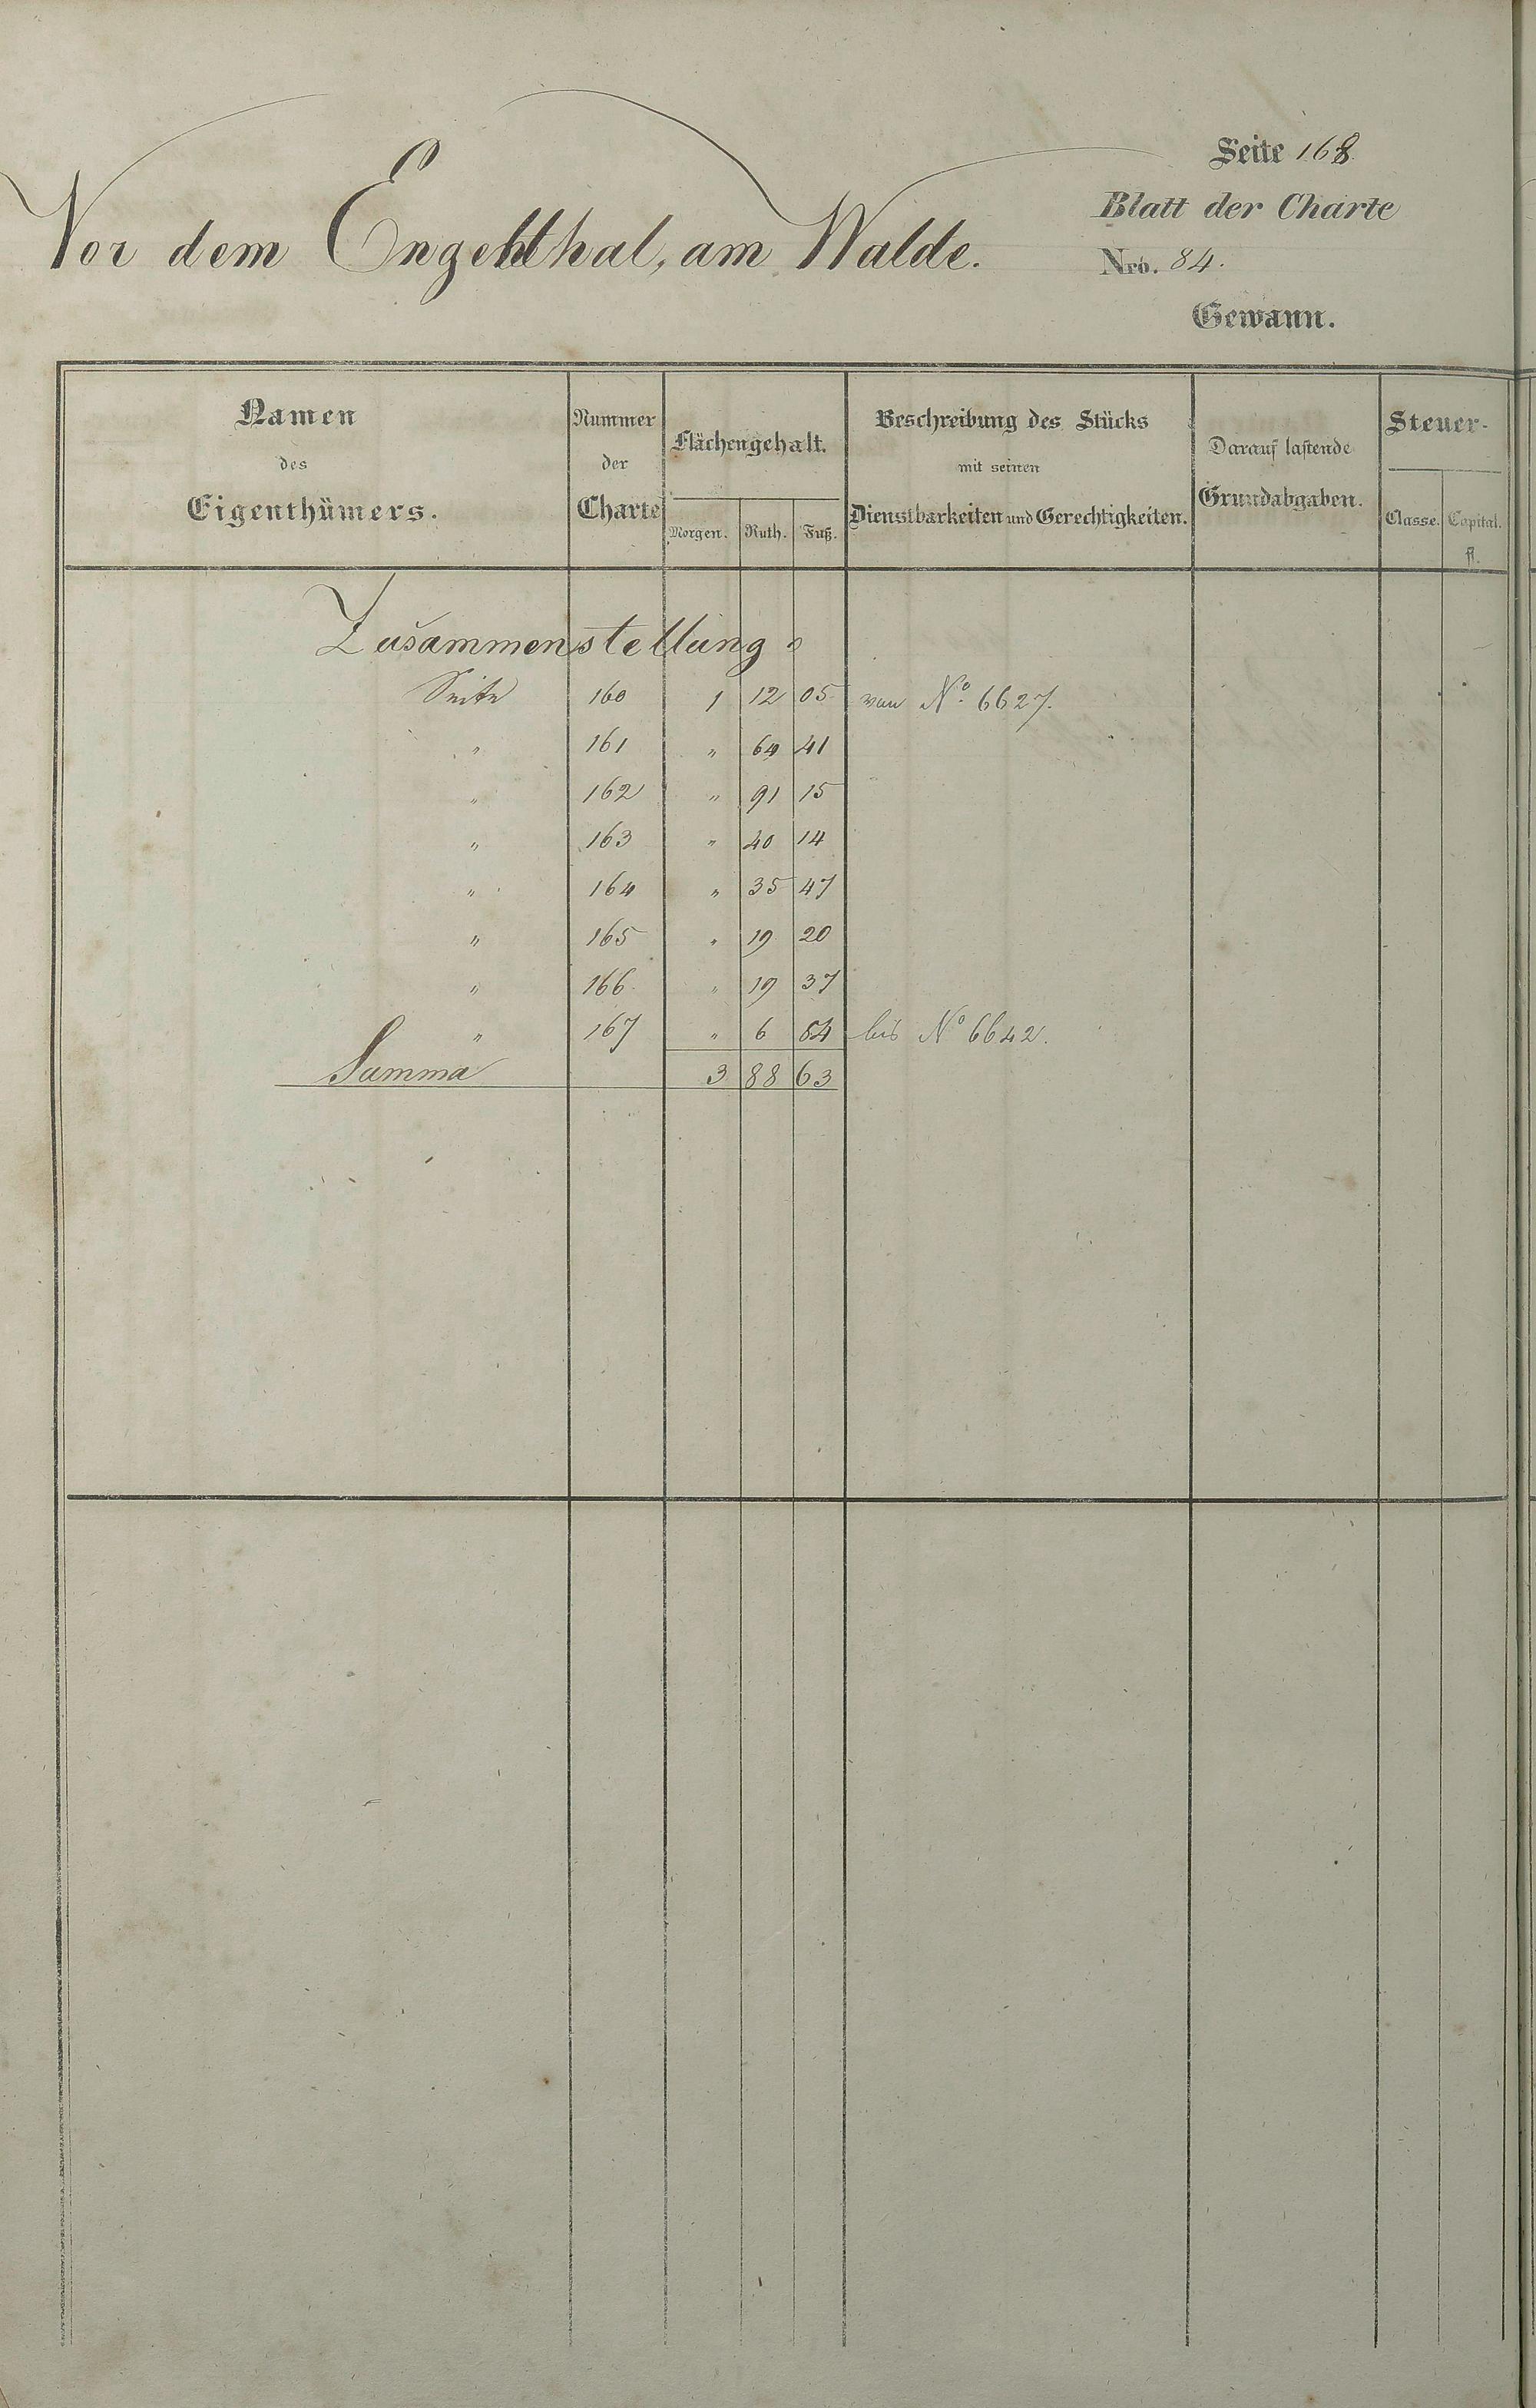 Seite 168.
Blatt der Charte
Vor dem Engelthal, am Walde.
Nro. 84.
Gewann.
Namen des Eigenthümers. Nummer der Charte Flächengehalt. Beschreibung des Stücks mit seinen Dienstbarkeiten und Gerechtigkeiten. Darauf lastende Grundabgaben. Steuer-
Morgen. Ruth. Fuß. Classe. Capital. fl.
Zusammenstellung:
Seite 160 1 12 05 von No. 6627.
" 161 " 64 41
" 162 " 91 15
" 163 " 40 14
" 164 " 35 47
" 165 " 19 20
" 166 " 19 37
" 167 " 6 84 bis No 6642.
Summa 3 88 63